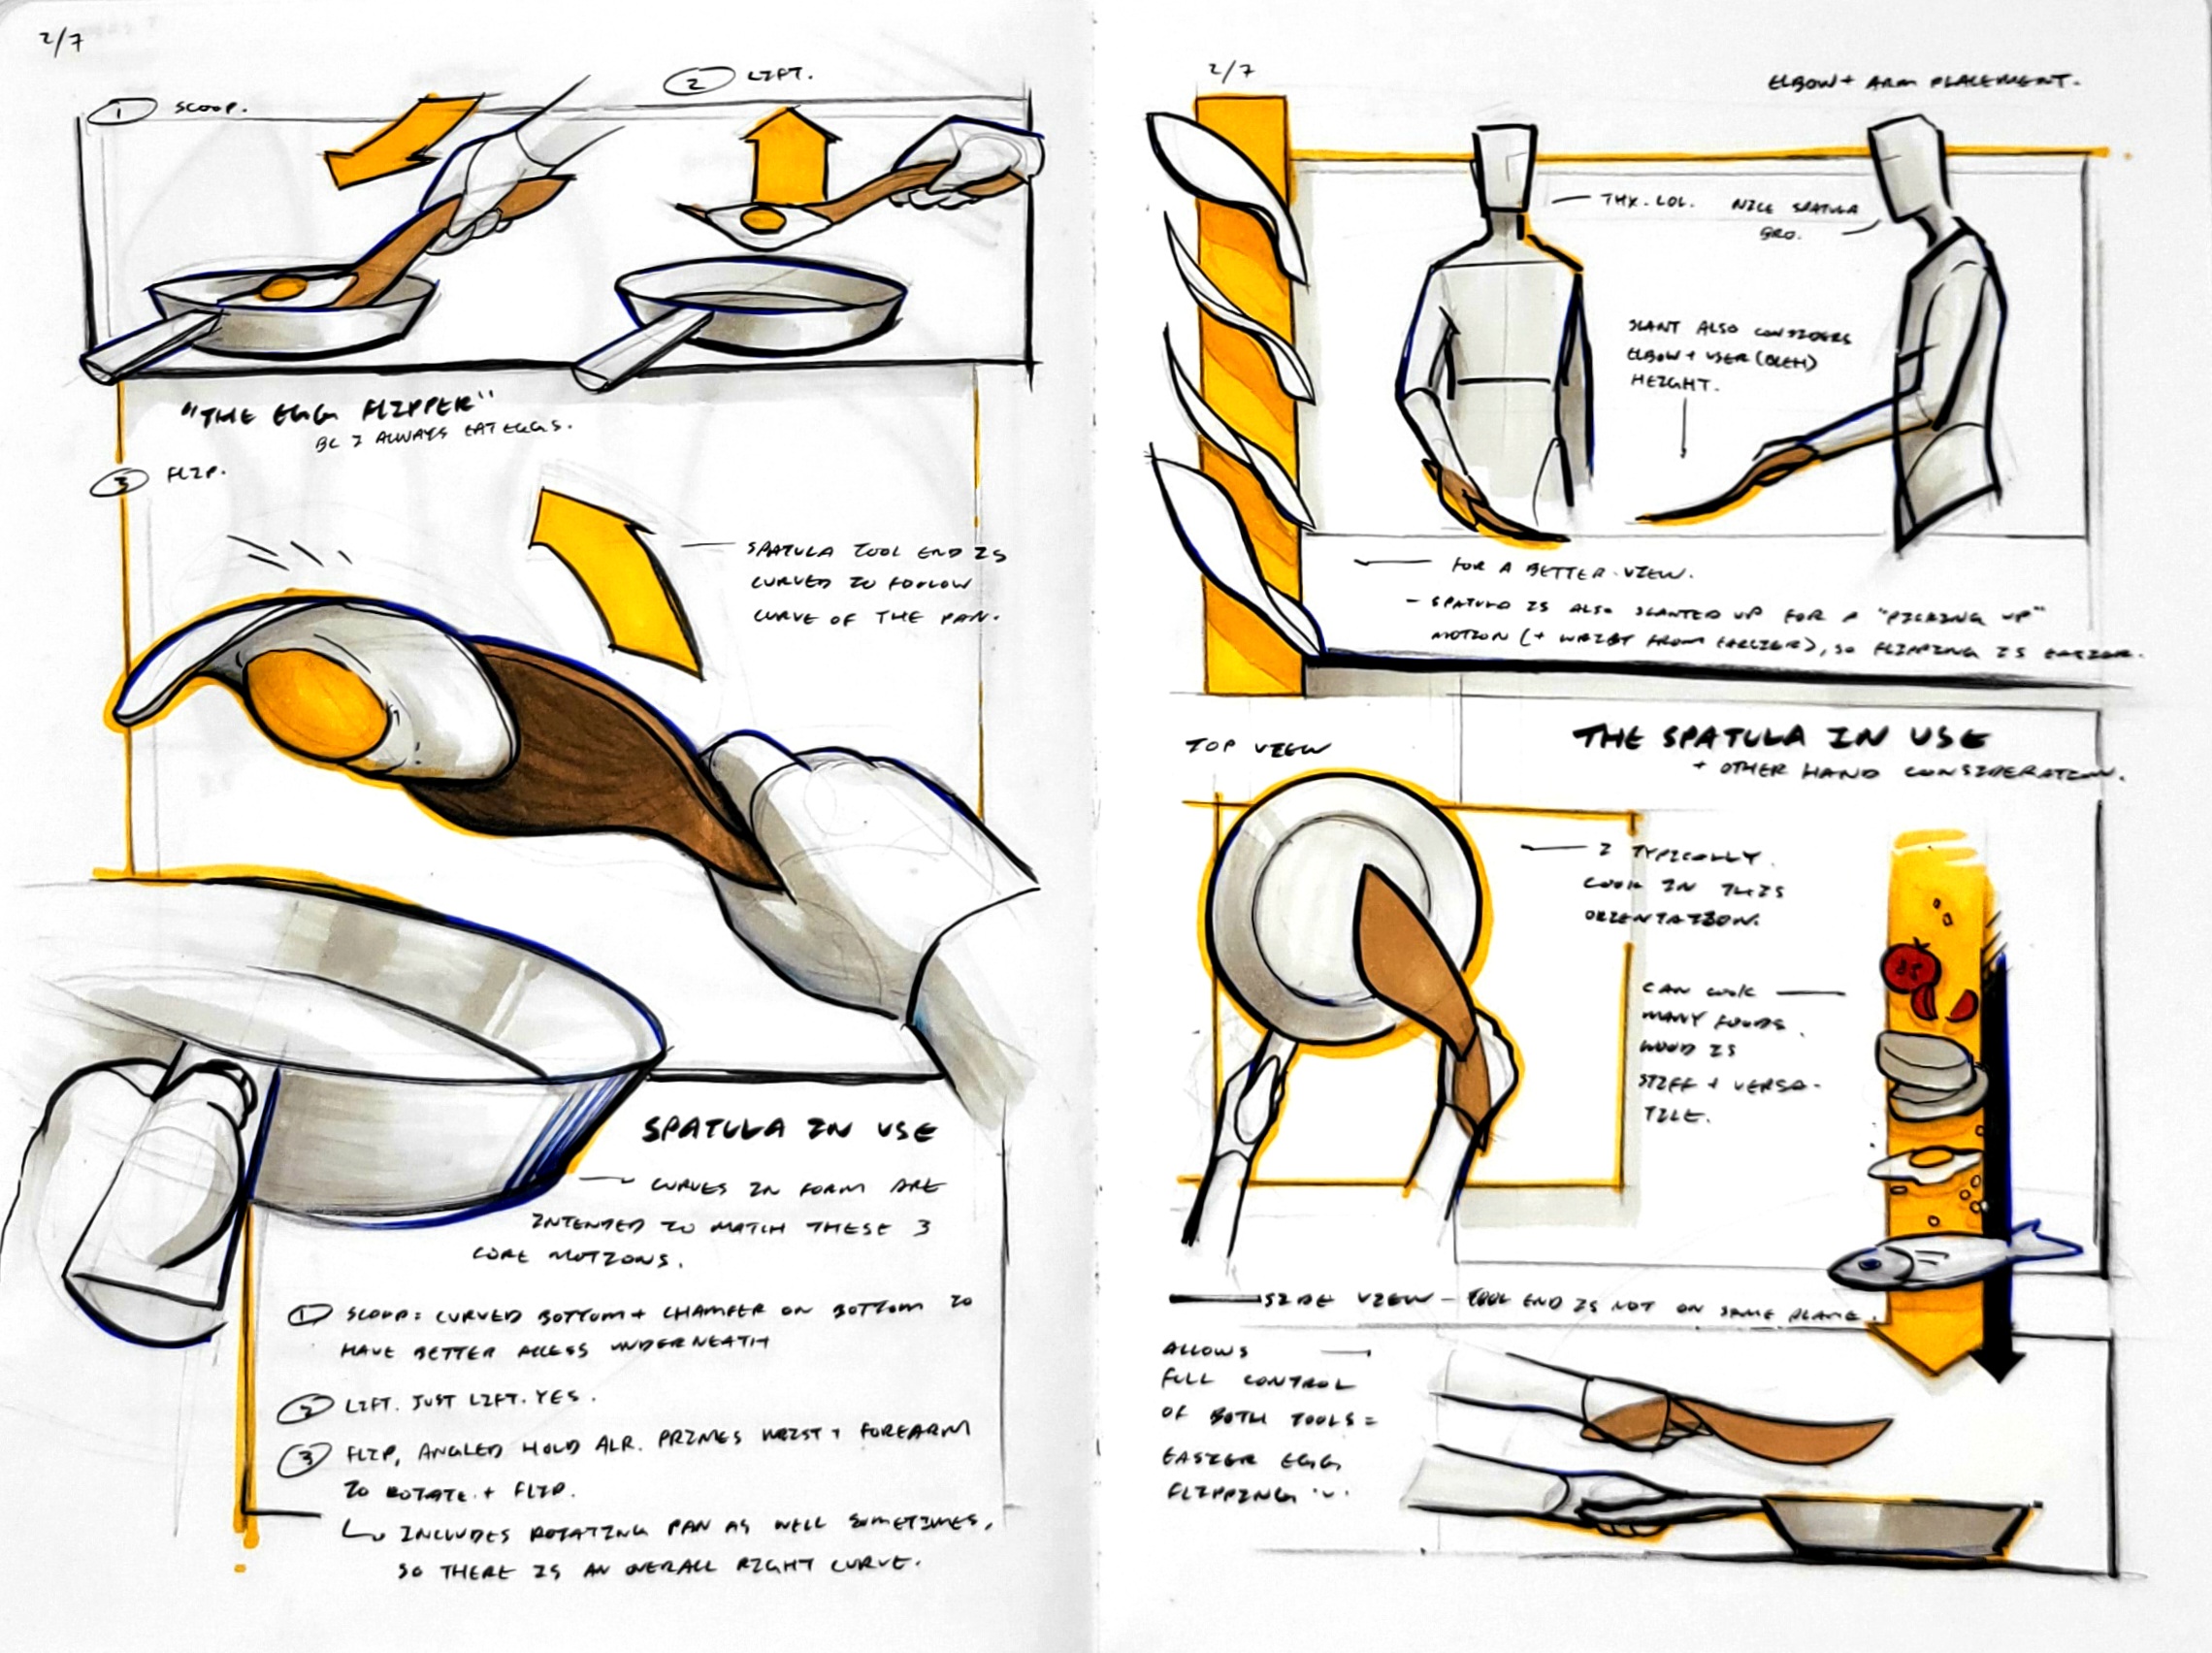 2/7
1 SCOOP.
2 LIFT.
"THE EGG FLIPPER"
BC I ALWAYS EAT EGGS.
3 FLIP.
SPATULA TOOL END IS
CURVED TO FOLLOW
CURVE OF THE PAN.
SPATULA IN USE
CURVES IN FORM ARE
INTENDED TO MATCH THESE 3
CORE MOTIONS.
1 SCOOP: CURVED BOTTOM + CHAMFER ON BOTTOM TO
HAVE BETTER ACCESS UNDERNEATH
2 LIFT. JUST LIFT. YES.
3 FLIP, ANGLED HOLD ALR. PRIMES WRIST + FOREARM
TO ROTATE + FLIP.
↳ INCLUDES ROTATING PAN AS WELL SOMETIMES,
SO THERE IS AN OVERALL RIGHT CURVE.
2/7
ELBOW + ARM PLACEMENT.
THX. LOL.
NICE SPATULA
BRO.
SLANT ALSO CONSIDERS
ELBOW + USER
HEIGHT.
FOR A BETTER VIEW.
- SPATULA IS ALSO SLANTED UP FOR A "PICKING UP"
MOTION (+ WRIST FROM EARLIER), SO FLIPPING IS EASIER.
THE SPATULA IN USE
+ OTHER HAND CONSIDERATION.
TOP VIEW
I TYPICALLY
COOK IN THIS
ORIENTATION.
CAN COOK
MANY FOODS.
WOOD IS
STIFF + VERSA-
TILE.
SIDE VIEW - TOOL END IS NOT ON SAME PLANE.
ALLOWS
FULL CONTROL
OF BOTH TOOLS =
EASIER EGG
FLIPPING